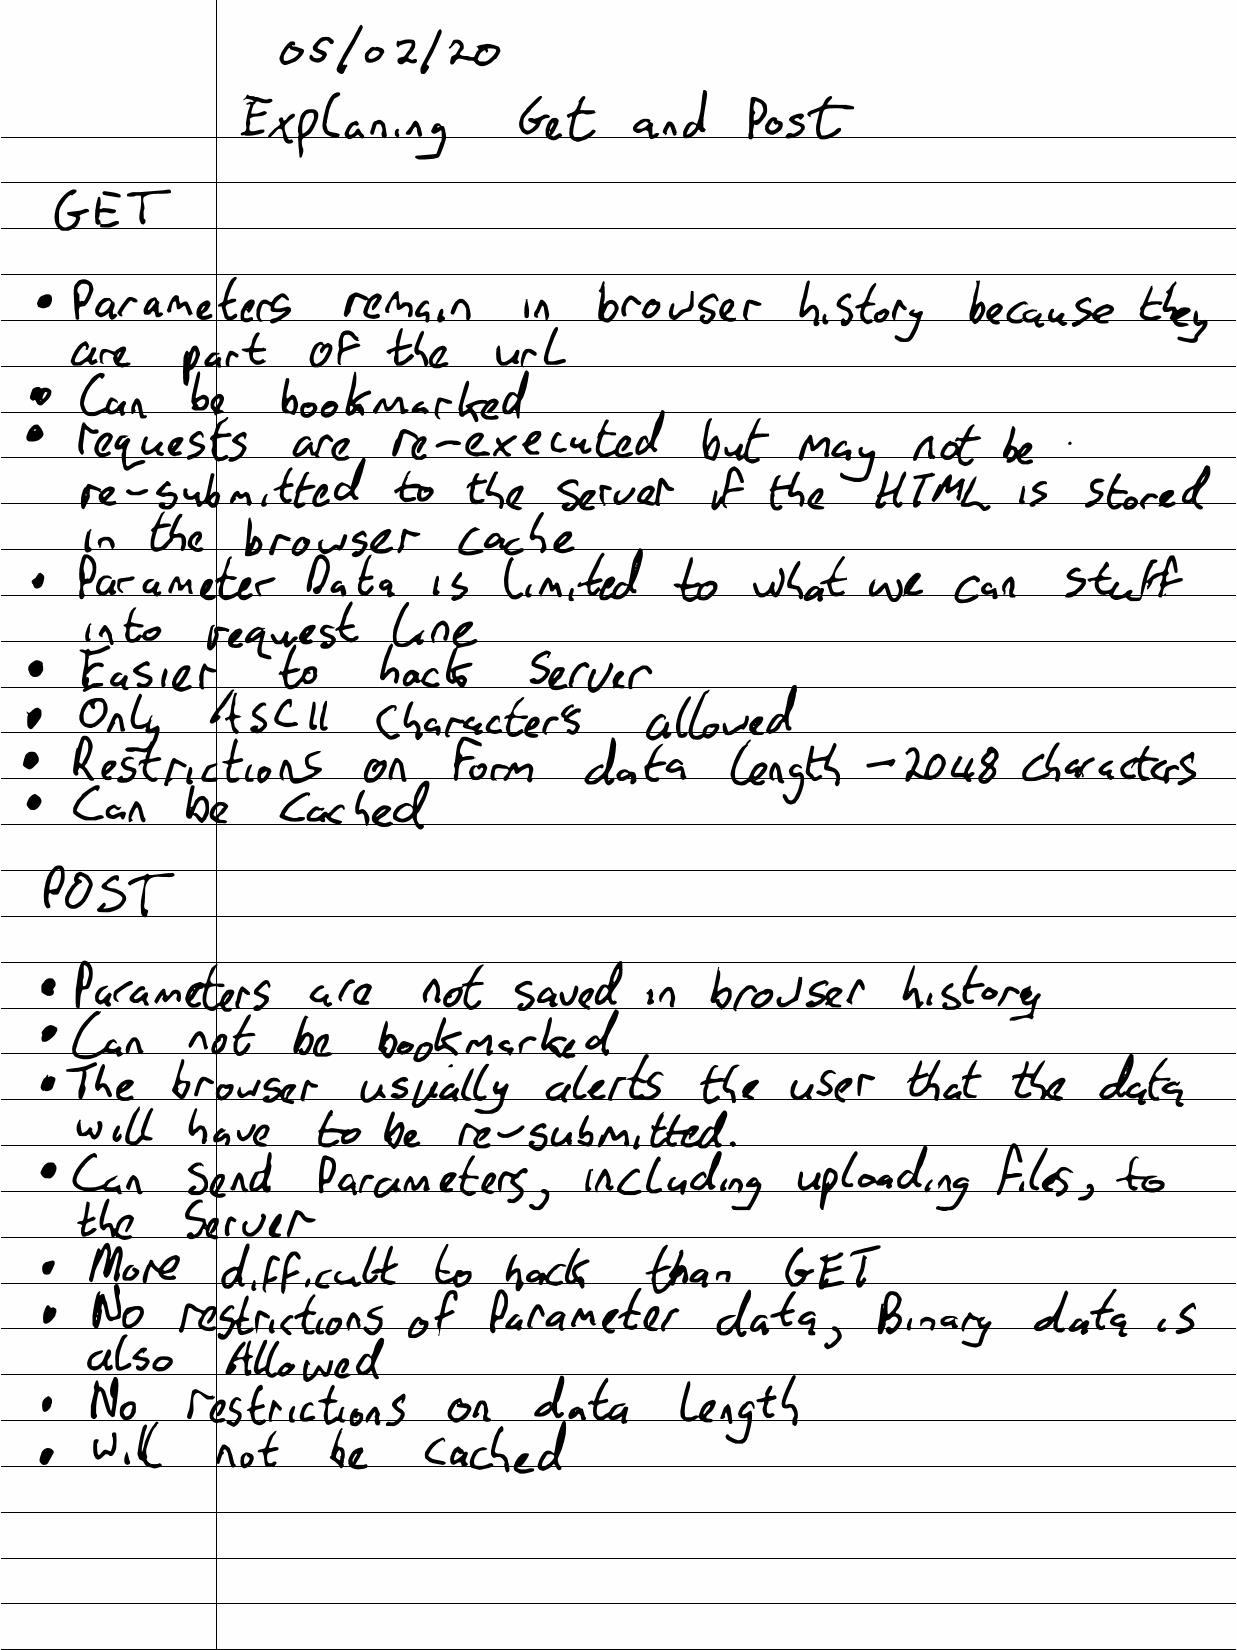 05/02/20
Explaning Get and Post
GET
• Parameters remain in browser history because they
are part of the url
• Can be bookmarked
• requests are re-executed but may not be
re-submitted to the server if the HTML is stored
in the browser cache
• Parameter Data is limited to what we can stuff
into request line
• Easier to hack server
• Only ASCII characters allowed
• Restrictions on Form data length - 2048 characters
• Can be cached
POST
• Parameters are not saved in browser history
• Can not be bookmarked
• The browser usually alerts the user that the data
will have to be re-submitted.
• Can send Parameters, including uploading files, to
the server
• More difficult to hack than GET
• No restrictions of Parameter data, Binary data is
also Allowed
• No restrictions on data length
• will not be cached